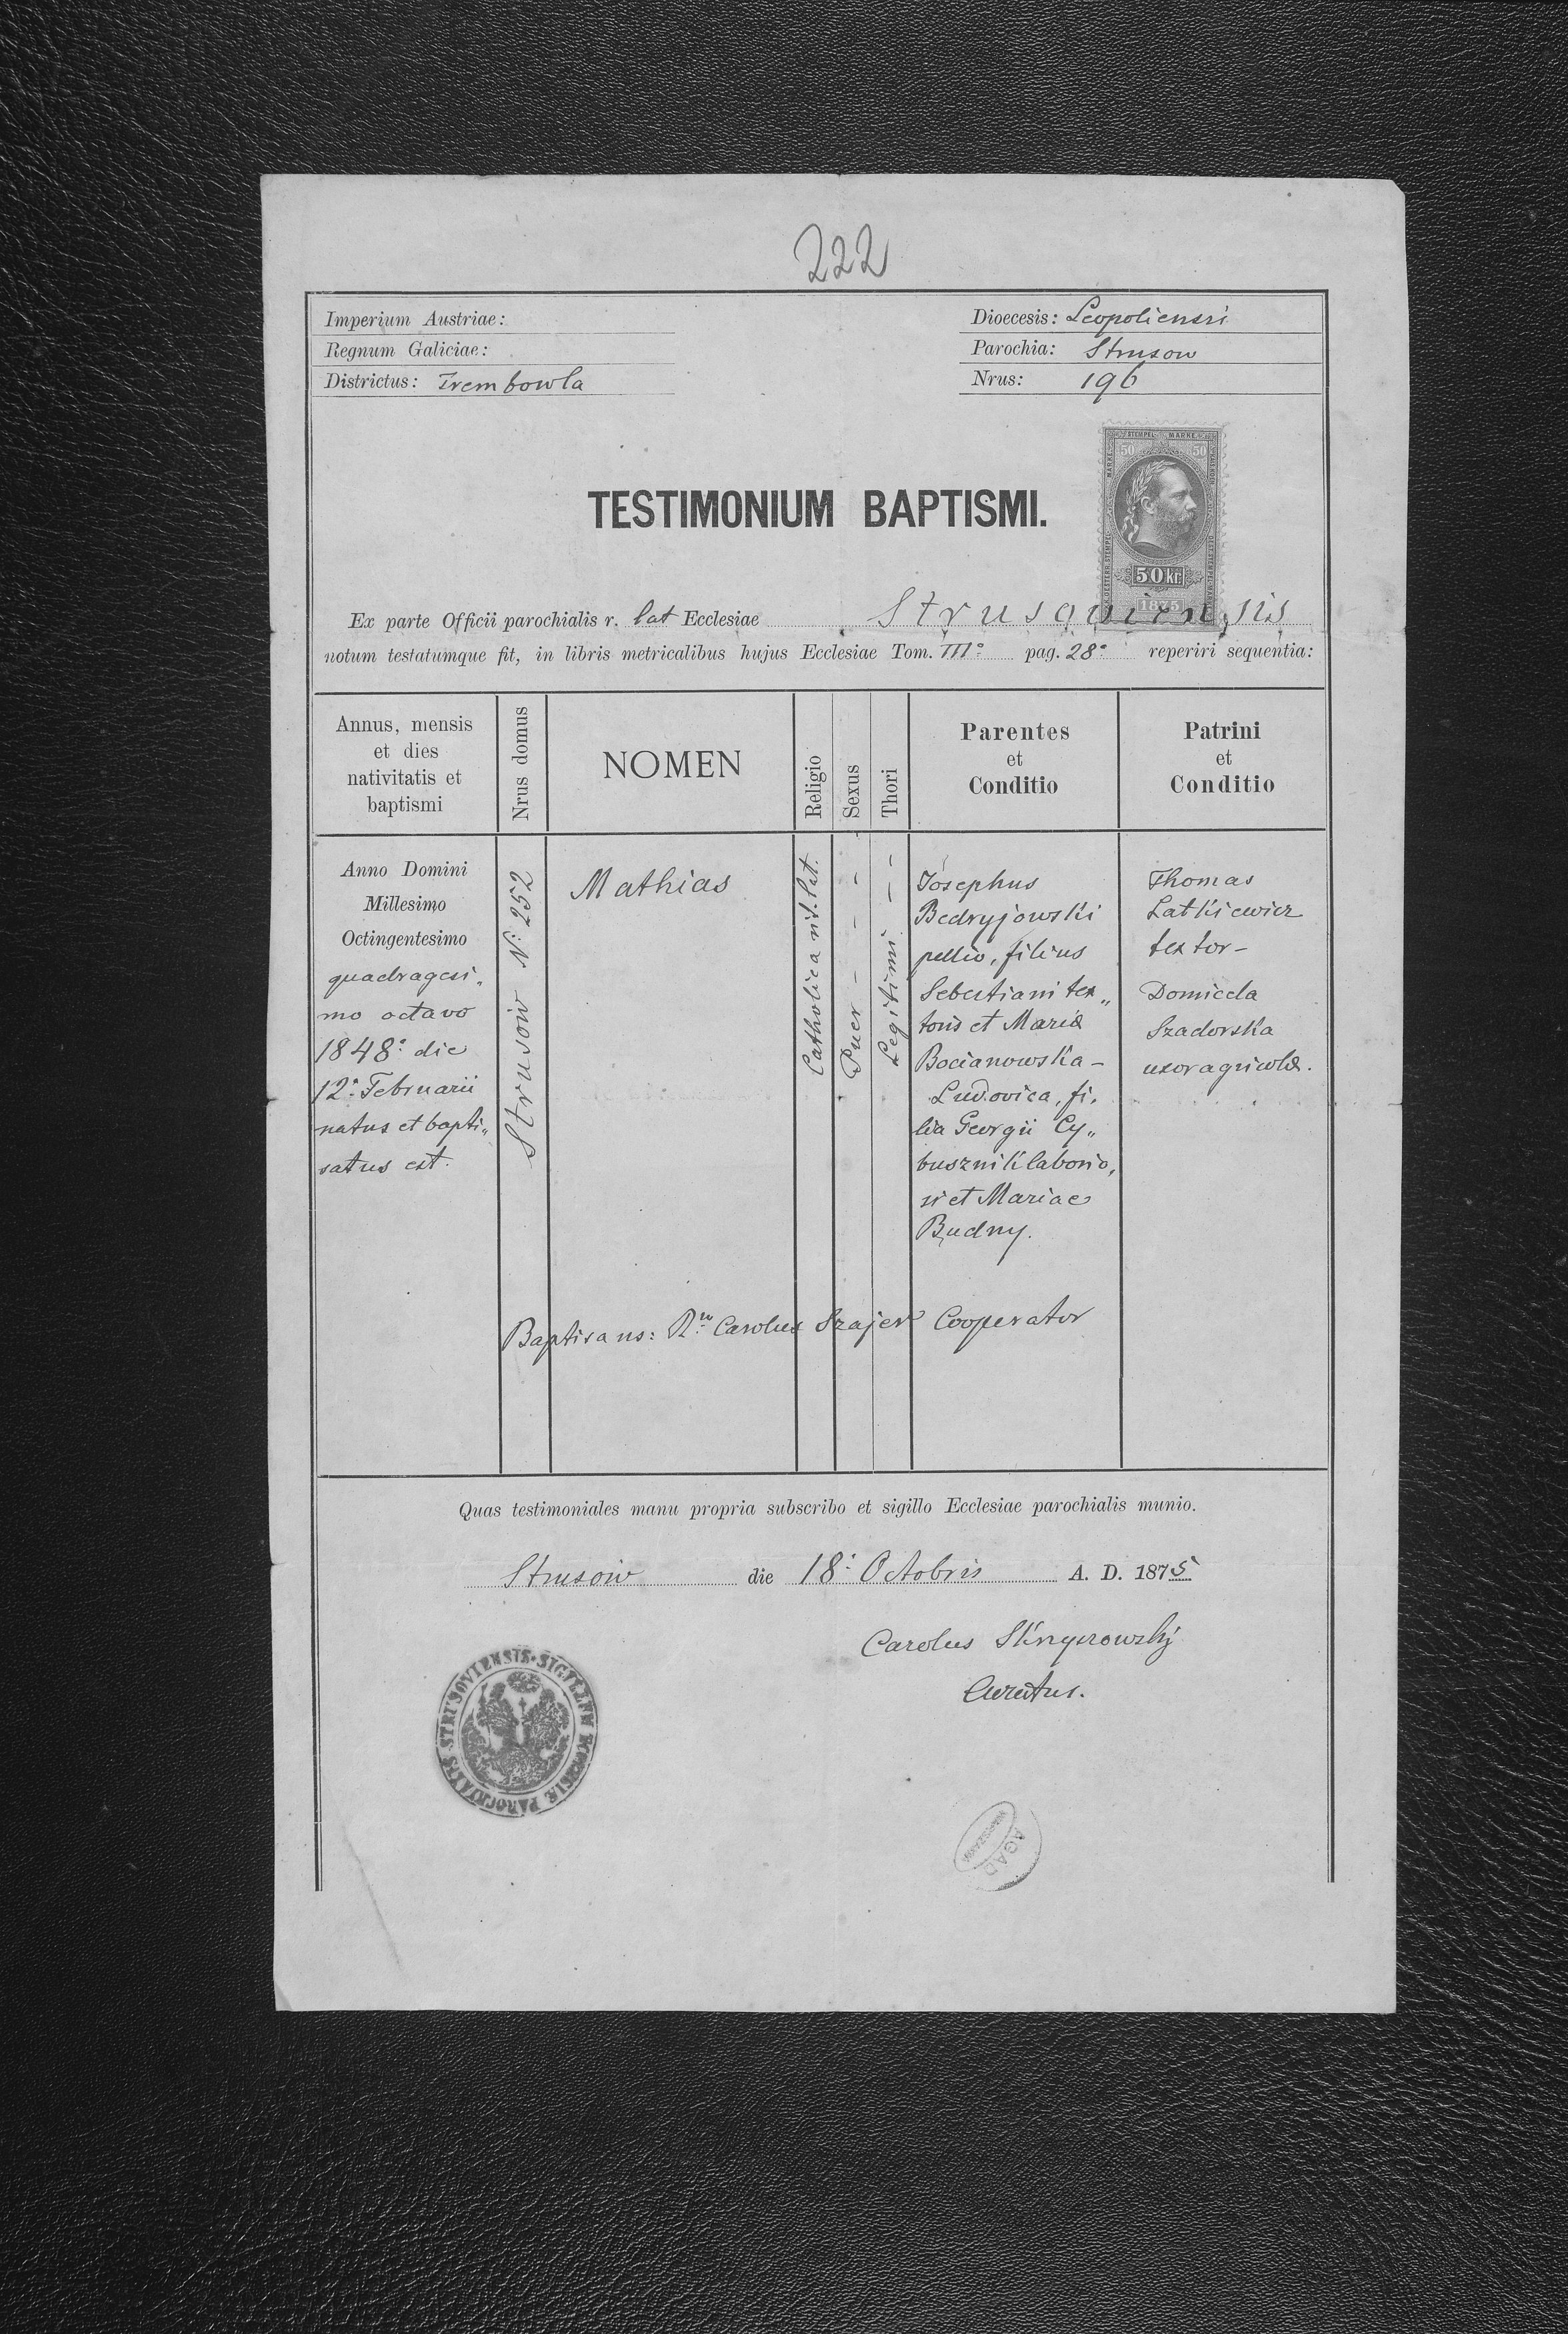 222
Imperium Austriae:
Regnum Galiciae:
Districtus: Trembowla
Dioecesis: Leopoliensri
Parochia: Strusow
Nrus: 196
STEMPEL MARKE
50 50
50 kr
1875
TESTIMONIUM BAPTISMI.
Ex parte Officii parochialis r. lat Ecclesiae Strusoviensis
notum testatumque fit, in libris metricalibus hujus Ecclesiae Tom. III° pag. 28° reperiri sequentia:
Annus, mensis
et dies
nativitatis et
baptismi
Nrus domus
NOMEN
Religio
Sexus
Thori
Parentes
et
Conditio
Patrini
et
Conditio
Anno Domini
Millesimo
Octingentesimo
quadragesi„
mo octavo
1848° die
12° Februarii
natus et bapti„
satus est.
Strusów N° 252
Mathias
Catholica rit. lat.
Puer – – –
Legitimi – –
Josephus
Bedryjowski
pellio, filius
Sebastiani tex„
toris et Mariæ
Bocianowska –
Ludovica, fi„
lia Georgii Cy„
busznik laborio„
si et Mariae
Budny.
Thomas
Latkiewicz
textor –
Domicela
Szadorska
uxor agricolæ.
Baptisans: Rss Carolus Szajer Cooperator
Quas testimoniales manu propria subscribo et sigillo Ecclesiae parochialis munio.
Strusów die 18° Octobris A. D. 1875
Carolus
Curatus.
SIGILLUM ECCLESIÆ PAROCHIALIS STRUSOVIENSIS
AGAD
WARSZAWA